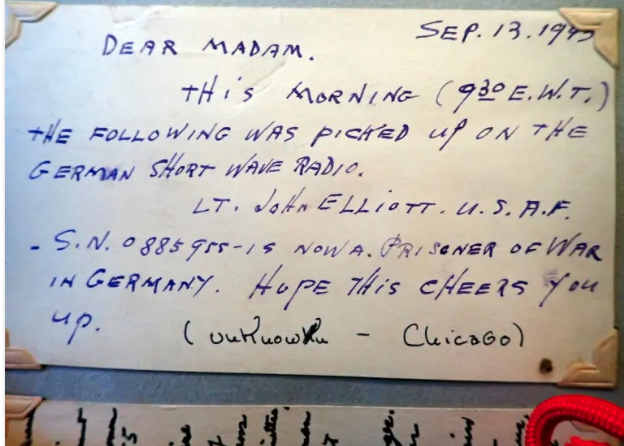 SEP. 13. 1943
DEAR MADAM.
THIS MORNING (9:30 E.W.T.)
THE FOLLOWING WAS PICKED UP ON THE
GERMAN SHORT WAVE RADIO.
LT. JOHN ELLIOTT. U.S.A.F.
- S.N. 0885955-IS NOW A. PRISONER OF WAR
IN GERMANY. HOPE THIS CHEERS YOU
UP.
(unknown - Chicago)